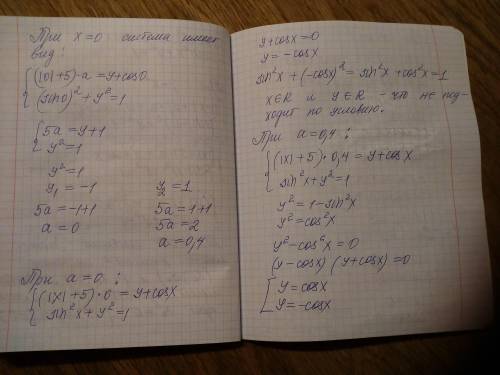 При x=0 система имеет
вид:
{(|0|+5)·a = y+cos0
(sin0)²+y²=1
{5a=y+1
y²=1
y²=1
y₁=-1
5a=-1+1
a=0
y₂=1
5a=1+1
5a=2
a=0,4
При a=0:
{(|x|+5)·0=y+cosx
sin²x+y²=1
y+cosx=0
y=-cosx
sin²x+(-cosx)²=sin²x+cos²x=1
x∈R и y∈R - что не под-
ходит по условию.
При a=0,4:
{(|x|+5)·0,4=y+cosx
sin²x+y²=1
y²=1-sin²x
y²=cos²x
y²-cos²x=0
(y-cosx)(y+cosx)=0
[y=cosx
y=-cosx